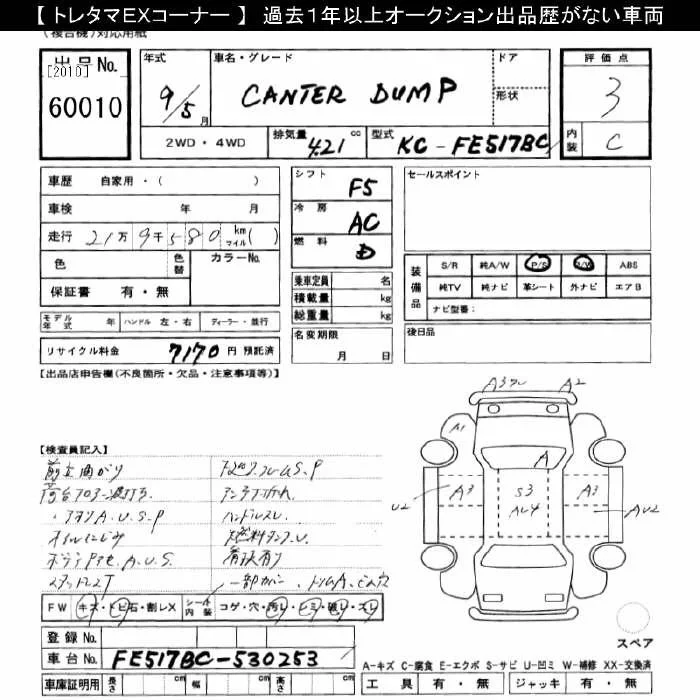 【 トレタマEXコーナー 】 過去1年以上オークション出品歴がない車両
(複合機)対応用紙
出品No.
[2010]
60010
年式
9/5月
車名・グレード
CANTER DUMP
ドア
形状
評価点
3
内装
C
2WD・4WD
排気量 421 cc
型式 KC-FE517BC
車歴 自家用・( )
車検 年 月
走行 21万9千580 km マイル( )
色
色替
カラーNo.
保証書 有・無
モデル年式 年 ハンドル 左・右 ディーラー・並行
リサイクル料金 7170 円 預託済
シフト F5
冷房 AC
燃料 D
乗車定員 名
積載量 kg
総重量 kg
名変期限
月 日
セールスポイント
装備品
S/R 純A/W P/S P/W ABS
純TV 純ナビ 革シート 外ナビ エアB
ナビ型番:
後日品
【出品店申告欄(不良箇所・欠品・注意事項等)】
【検査員記入】
前立曲がり
荷台フロアー波打ち
・アオリA.U.S.P
オイルにじみ
ボデーP
A.U.S.
下廻りフレームS.P
アンテナ
ハンドルスレ
燃料タンクU
一部カバー
FW キズ・トビ石・割レX
シート内装 コゲ・穴・汚レ・シミ・破レ・スレ
A2
A1
A
U2
A3
S3
A3
AU2
AU4
スペア
登録No.
車台No. FE517BC-530253
車庫証明用 長さ cm 幅 cm 高さ cm
A-キズ C-腐食 E-エクボ S-サビ U-凹ミ W-補修 XX-交換済
工具 有・無 ジャッキ 有・無